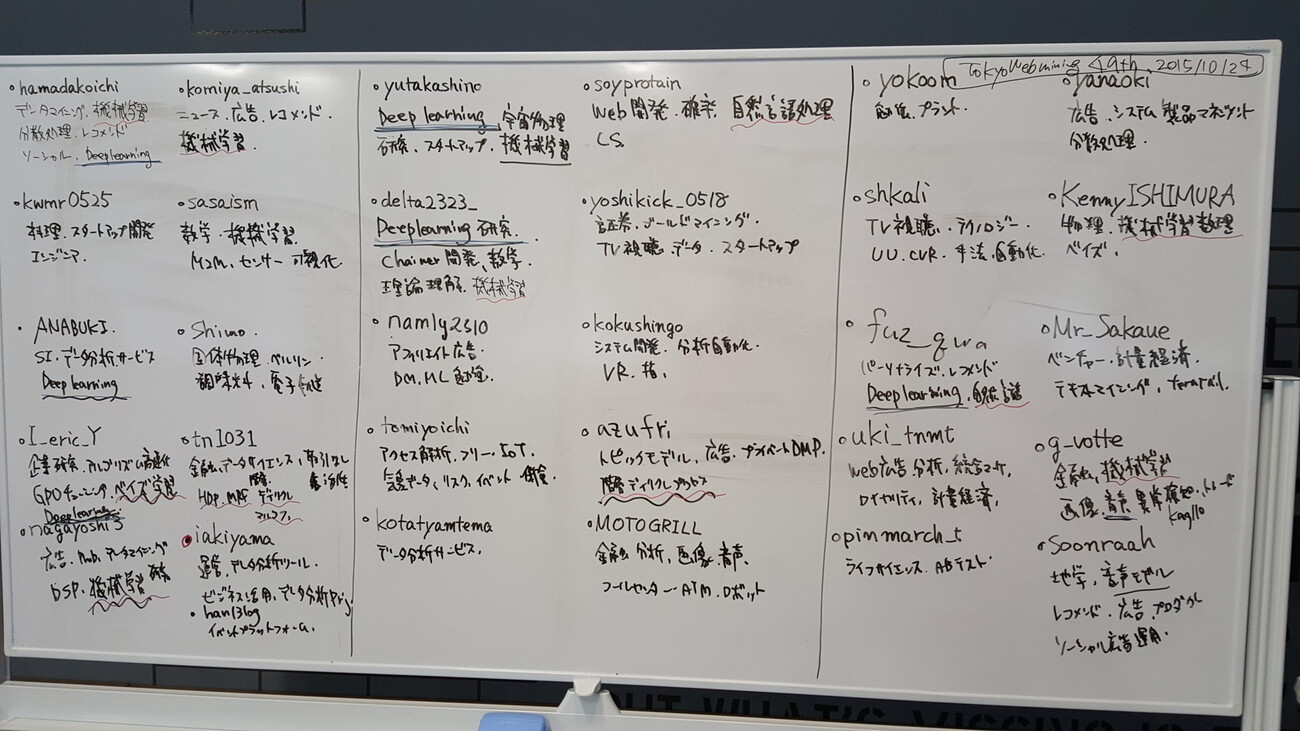 TokyoWebmining 49th 2015/10/24
・hamadakoichi
データマイニング、機械学習
分散処理、レコメンド
ソーシャル、Deeplearning
・komiya_atsushi
ニュース、広告、レコメンド、
機械学習、
・kwmr0525
料理、スタートアップ開発
エンジニア、
・sasaism
数学、機械学習、
M2M、センサー 可視化
・ANABUKI.
SI、データ分析サービス
Deep learning
・Shimo.
固体物理、ベルリン
・I_eric_Y
企業研究、アルゴリズム高速化
GPUチューニング、ベイズ学習
Deeplearning
・tn1031
金融、データサイエンス、
HDP、
・nagayoshi3
広告、Prob、データマイニング
DSP、機械学習
・iakiyama
運営、データ分析ツール、
ビジネス活用、データ分析Prj
・han13log
イベントプラットフォーム、
・yutakashino
Deep learning、宇宙物理
研究、スタートアップ、機械学習
・delta2323_
Deeplearning 研究、
Chainer 開発、数学、
理論理解、機械学習
・namly2310
アフィリエイト広告、
DM、ML 勉強、
・tomiyoichi
アクセス解析、フリー、IoT、
気象データ、リスク、イベント、保険
・kotatyamtema
データ分析サービス、
・soyprotain
Web開発、確率、自然言語処理
CS、
・yoshikick_0518
証券、ゴールドマイニング、
TV視聴、データ、スタートアップ
・kokushingo
システム開発、分析自動化、
VR、指、
・azufri
トピックモデル、広告、プライベートDMP、
階層ディリクレプロセス
・MOTOGRILL
金融分析、画像、音声、
コールセンター、ATM、ロボット
・yokoom
勉強、プラント、
・yanaoki
広告、システム 製品マネジメント
分散処理、
・shkali
TV視聴、テクノロジー、
UU、CVR、手法、自動化、
・Kenny ISHIMURA
物理、機械学習数理
ベイズ、
・fuz_qwa
パーソナライズ、レコメンド
Deeplearning、自然言語
・Mr_Sakaue
ベンチャー、計量経済、
テキストマイニング、
・uki_tnmt
Web広告分析、統合マーケ、
ロイヤルティ、計量経済、
・g_votte
金融、機械学習
画像、音声、異常検知、トレード
・pinmarch_t
ライフサイエンス、ABテスト
・Soonraah
地学、音声モデル
レコメンド、広告、プロダクト
ソーシャル広告運用、